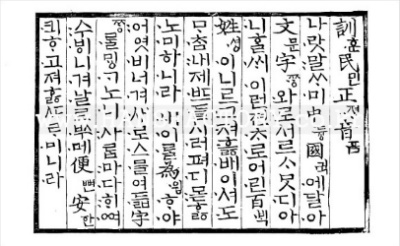 訓훈民민正져ᇰ音
나랏말ᄊᆞ미中듕國귁에달아
文문字ᄍᆞᆼ와로서르ᄉᆞᄆᆞᆺ디아
니ᄒᆞᆯᄊᆡ이런젼ᄎᆞ로어린百ᄇᆡᆨ
姓셩이니르고져ᄒᆞᇙ배이셔도
ᄆᆞᄎᆞᆷ내제ᄠᅳ들시러펴디몯ᄒᆞᇙ
노미하니라내이ᄅᆞᆯ為윙ᄒᆞ야
어엿비너겨새로스믈여듧字
ᄍᆞᆼᄅᆞᆯᄆᆡᇰᄀᆞ노니사ᄅᆞᆷ마다ᄒᆡᅇᅧ
수ᄫᅵ니겨날로ᄡᅮ메便뼌安한
킈ᄒᆞ고져ᄒᆞᇙᄯᆞᄅᆞ미니라